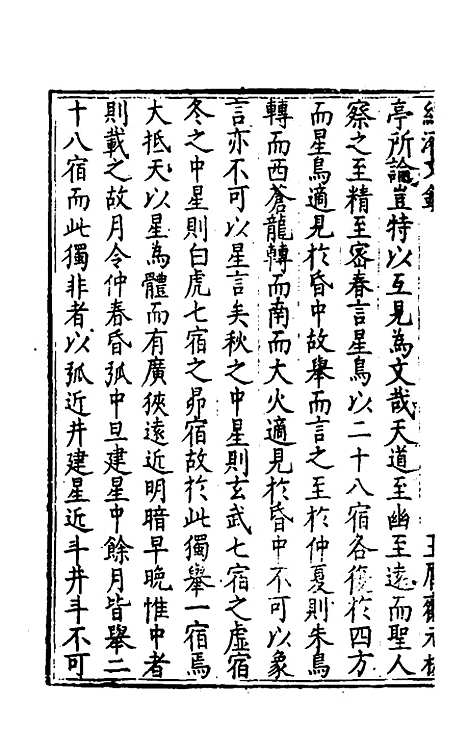 亭所論豈特以互見為文哉天道至幽至遠而聖人
察之至精至密春言星鳥以二十八宿各復於四方
而星鳥適見於昏中故舉而言之至於仲夏則朱鳥
轉而西蒼龍轉而南而大火適見於昏中不可以象
言亦不可以星言矣秋之中星則玄武七宿之虛宿
冬之中星則白虎七宿之昴宿故於此獨舉一宿焉
大抵天以星為體而有廣狹遠近明暗早晚惟中者
則載之故月令仲春昏弧中旦建星中餘月皆舉二
十八宿而此獨非者以弧近井建星近斗井斗不可